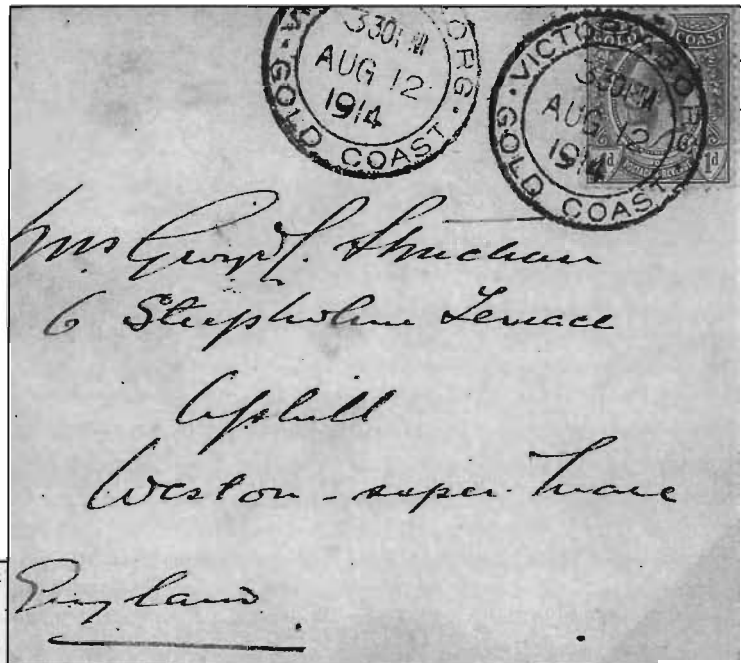 VICTORIABORG · GOLD COAST
3 30 PM
AUG 12
1914
VICTORIABORG · GOLD COAST
3 30 PM
AUG 12
1914
GOLD COAST
1d 1d
Mrs George
6 Steepholme Terrace
Uphill
Weston-super-Mare
England